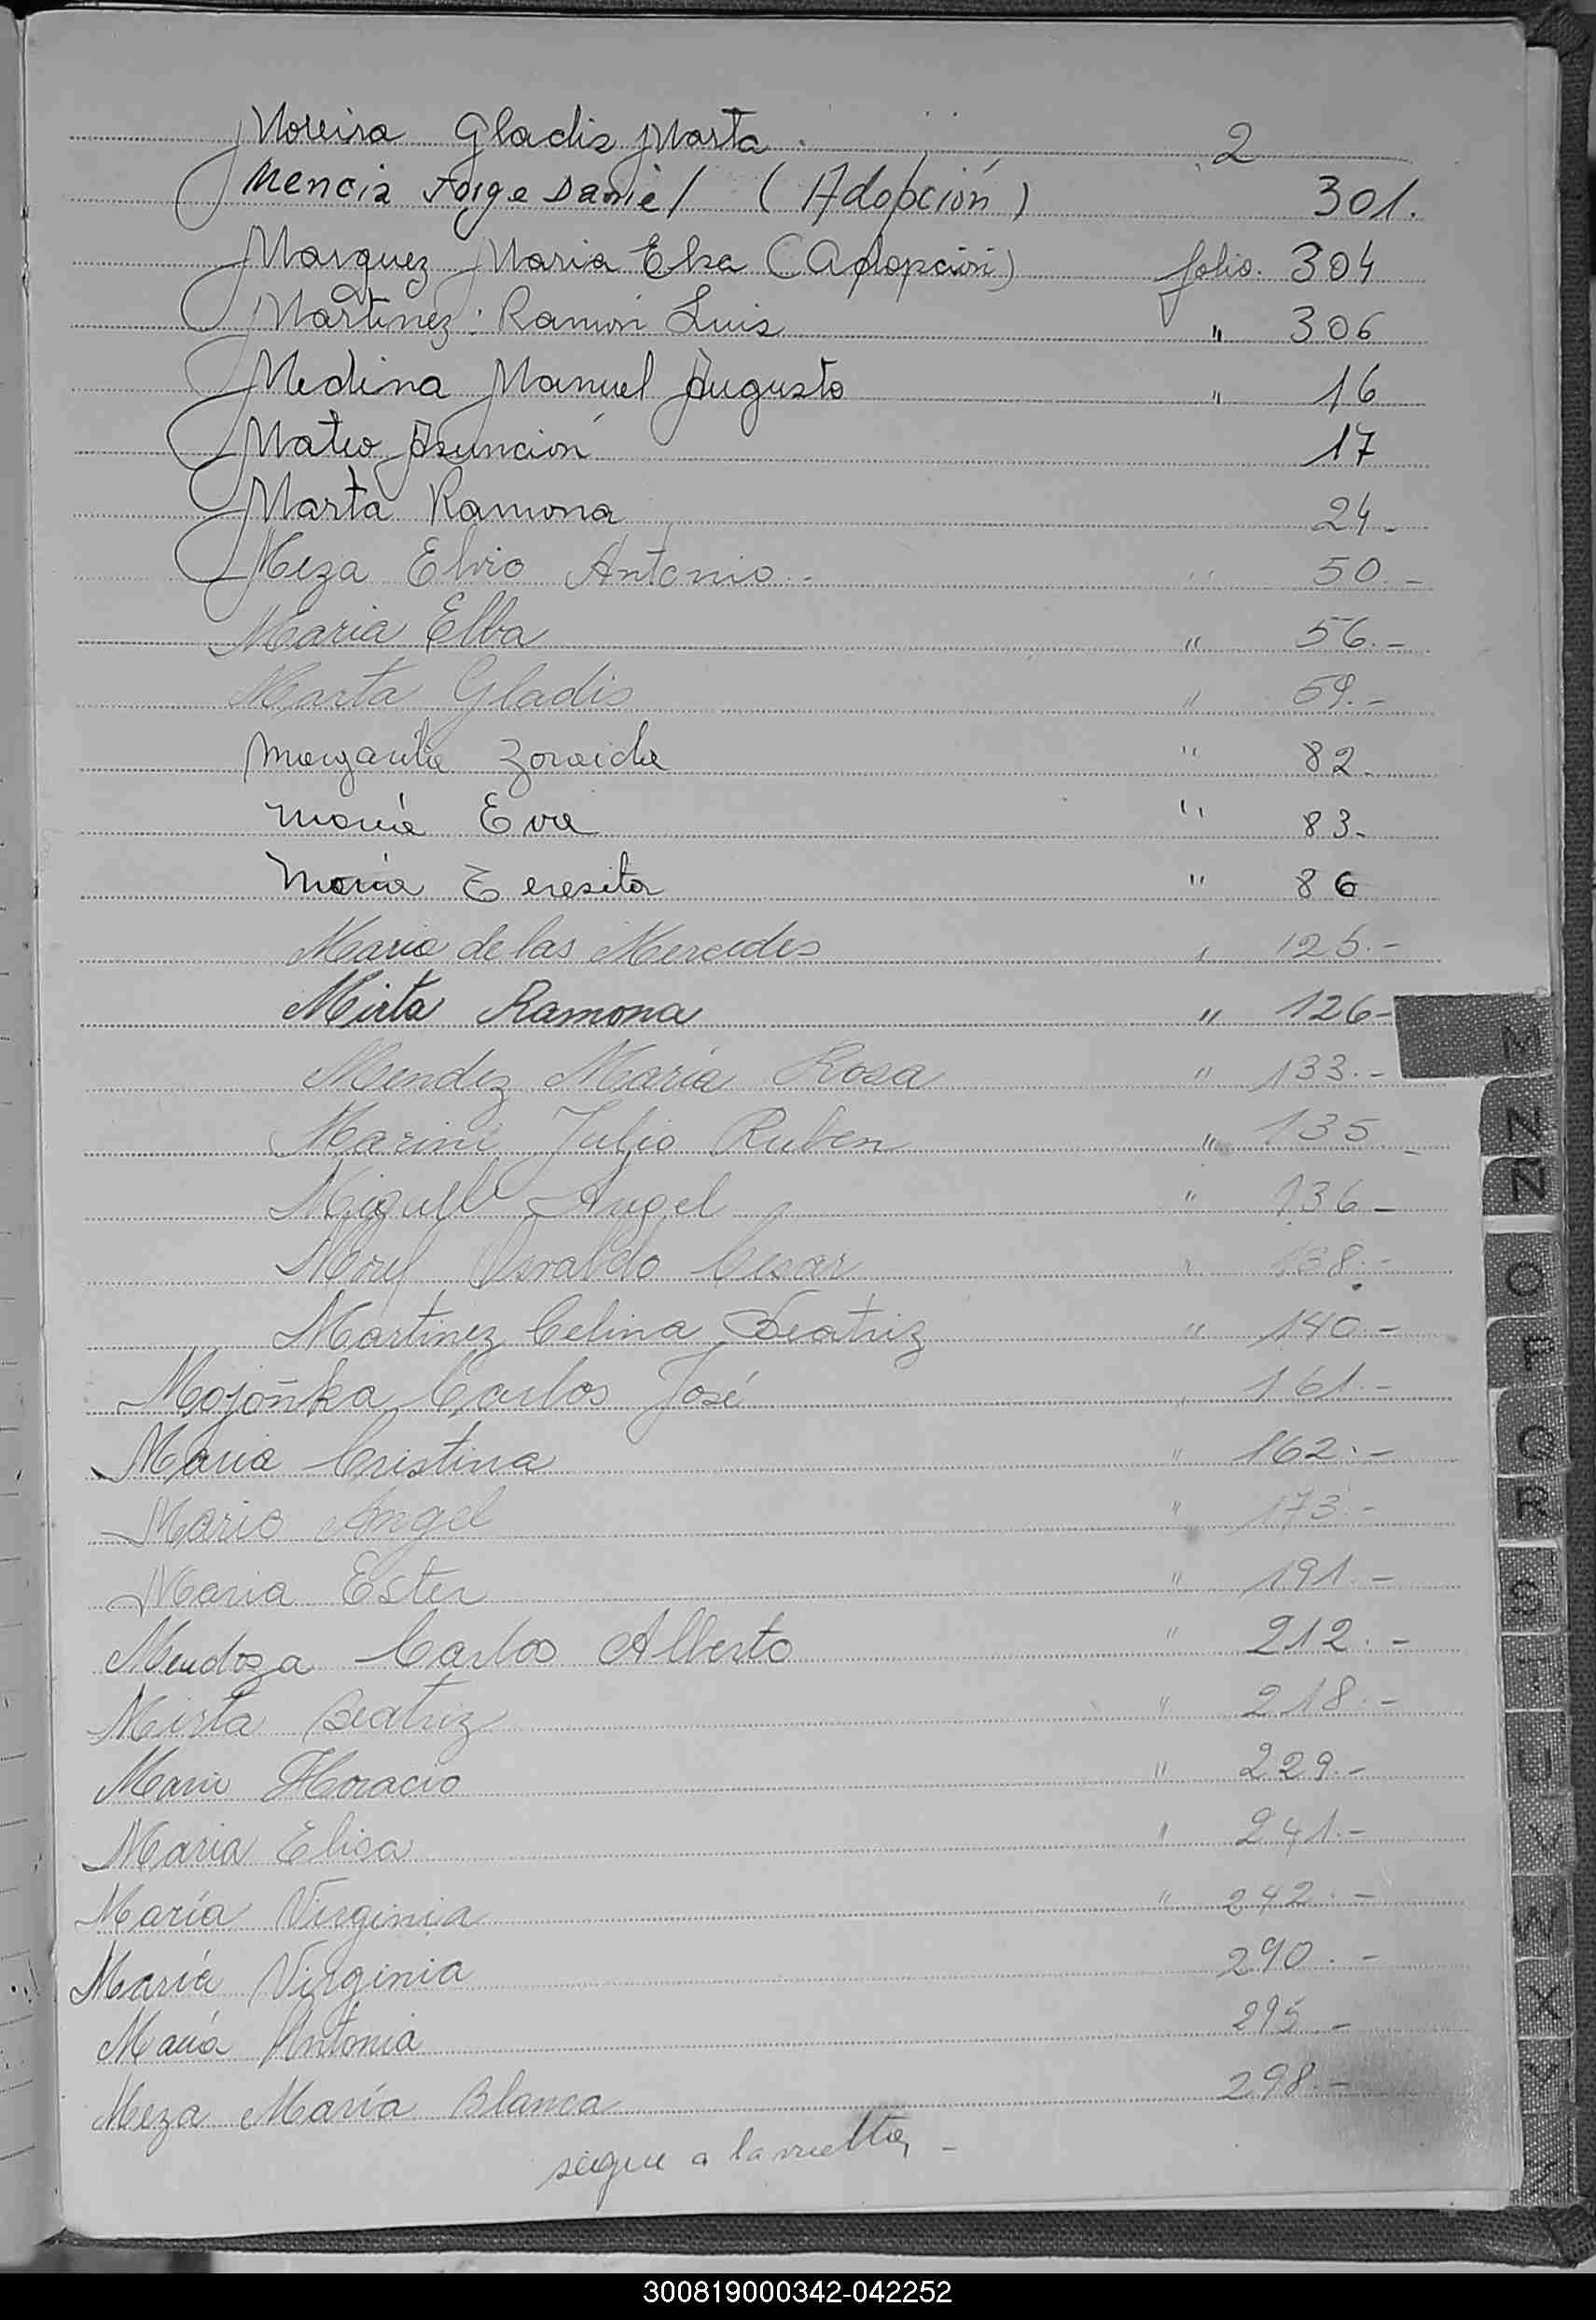 Moreira Gladis Marta 2
Mencia Jorge Daniel (Adopción) 301.
Marquez Maria Elsa (Adopción) folio. 304
Martinez: Ramón Luis " 306
Medina Manuel Augusto " 16
Mateo Asunción 17
Marta Ramona 24-
Meza Elvio Antonio - " 50.-
Maria Elba " 56.-
Marta Gladis " 59.-
Margarita Zoraida " 82.
María Eva " 83-
María Teresita " 86
Maria de las Mercedes " 125.-
Mirta Ramona " 126-
Mendez María Rosa " 133.-
Marini Julio Ruben " 135-
Miguel Angel " 136-
Osvaldo Cesar " 138.-
Martinez Celina Beatriz " 140-
Carlos José " 161.-
Maria Cristina " 162.-
Mario Angel " 173.-
Maria Ester " 191.-
Mendoza Carlos Alberto " 212.-
Mirta Beatriz " 218.-
Horacio " 229.-
Maria Elisa " 241.-
María Virginia " 242.-
María Virginia 290.-
María Antonia 295.-
Meza María Blanca 298.-
sigue a la vuelta -
M
N
Ñ
O
P
Q
R
S
T
U
V
W
X
Y
300819000342-042252